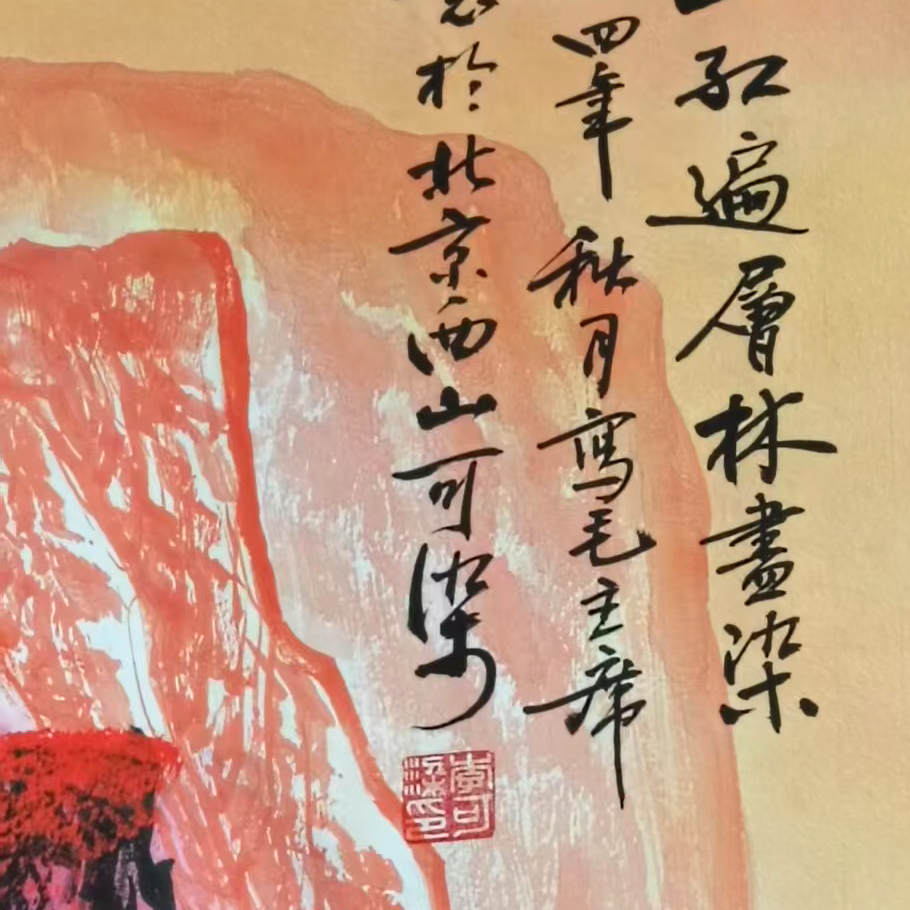 红遍層林盡染
四年秋月寫毛主席
於北京西山可染
李可染印